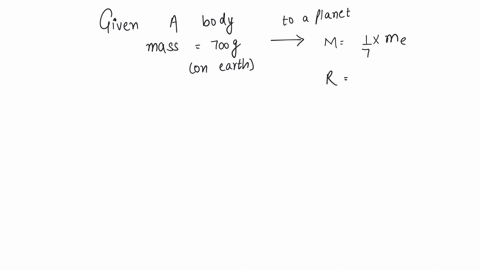 Given A body to a planet
mass = 700g ⟶ M = 1/7 × me
(on earth)
R =